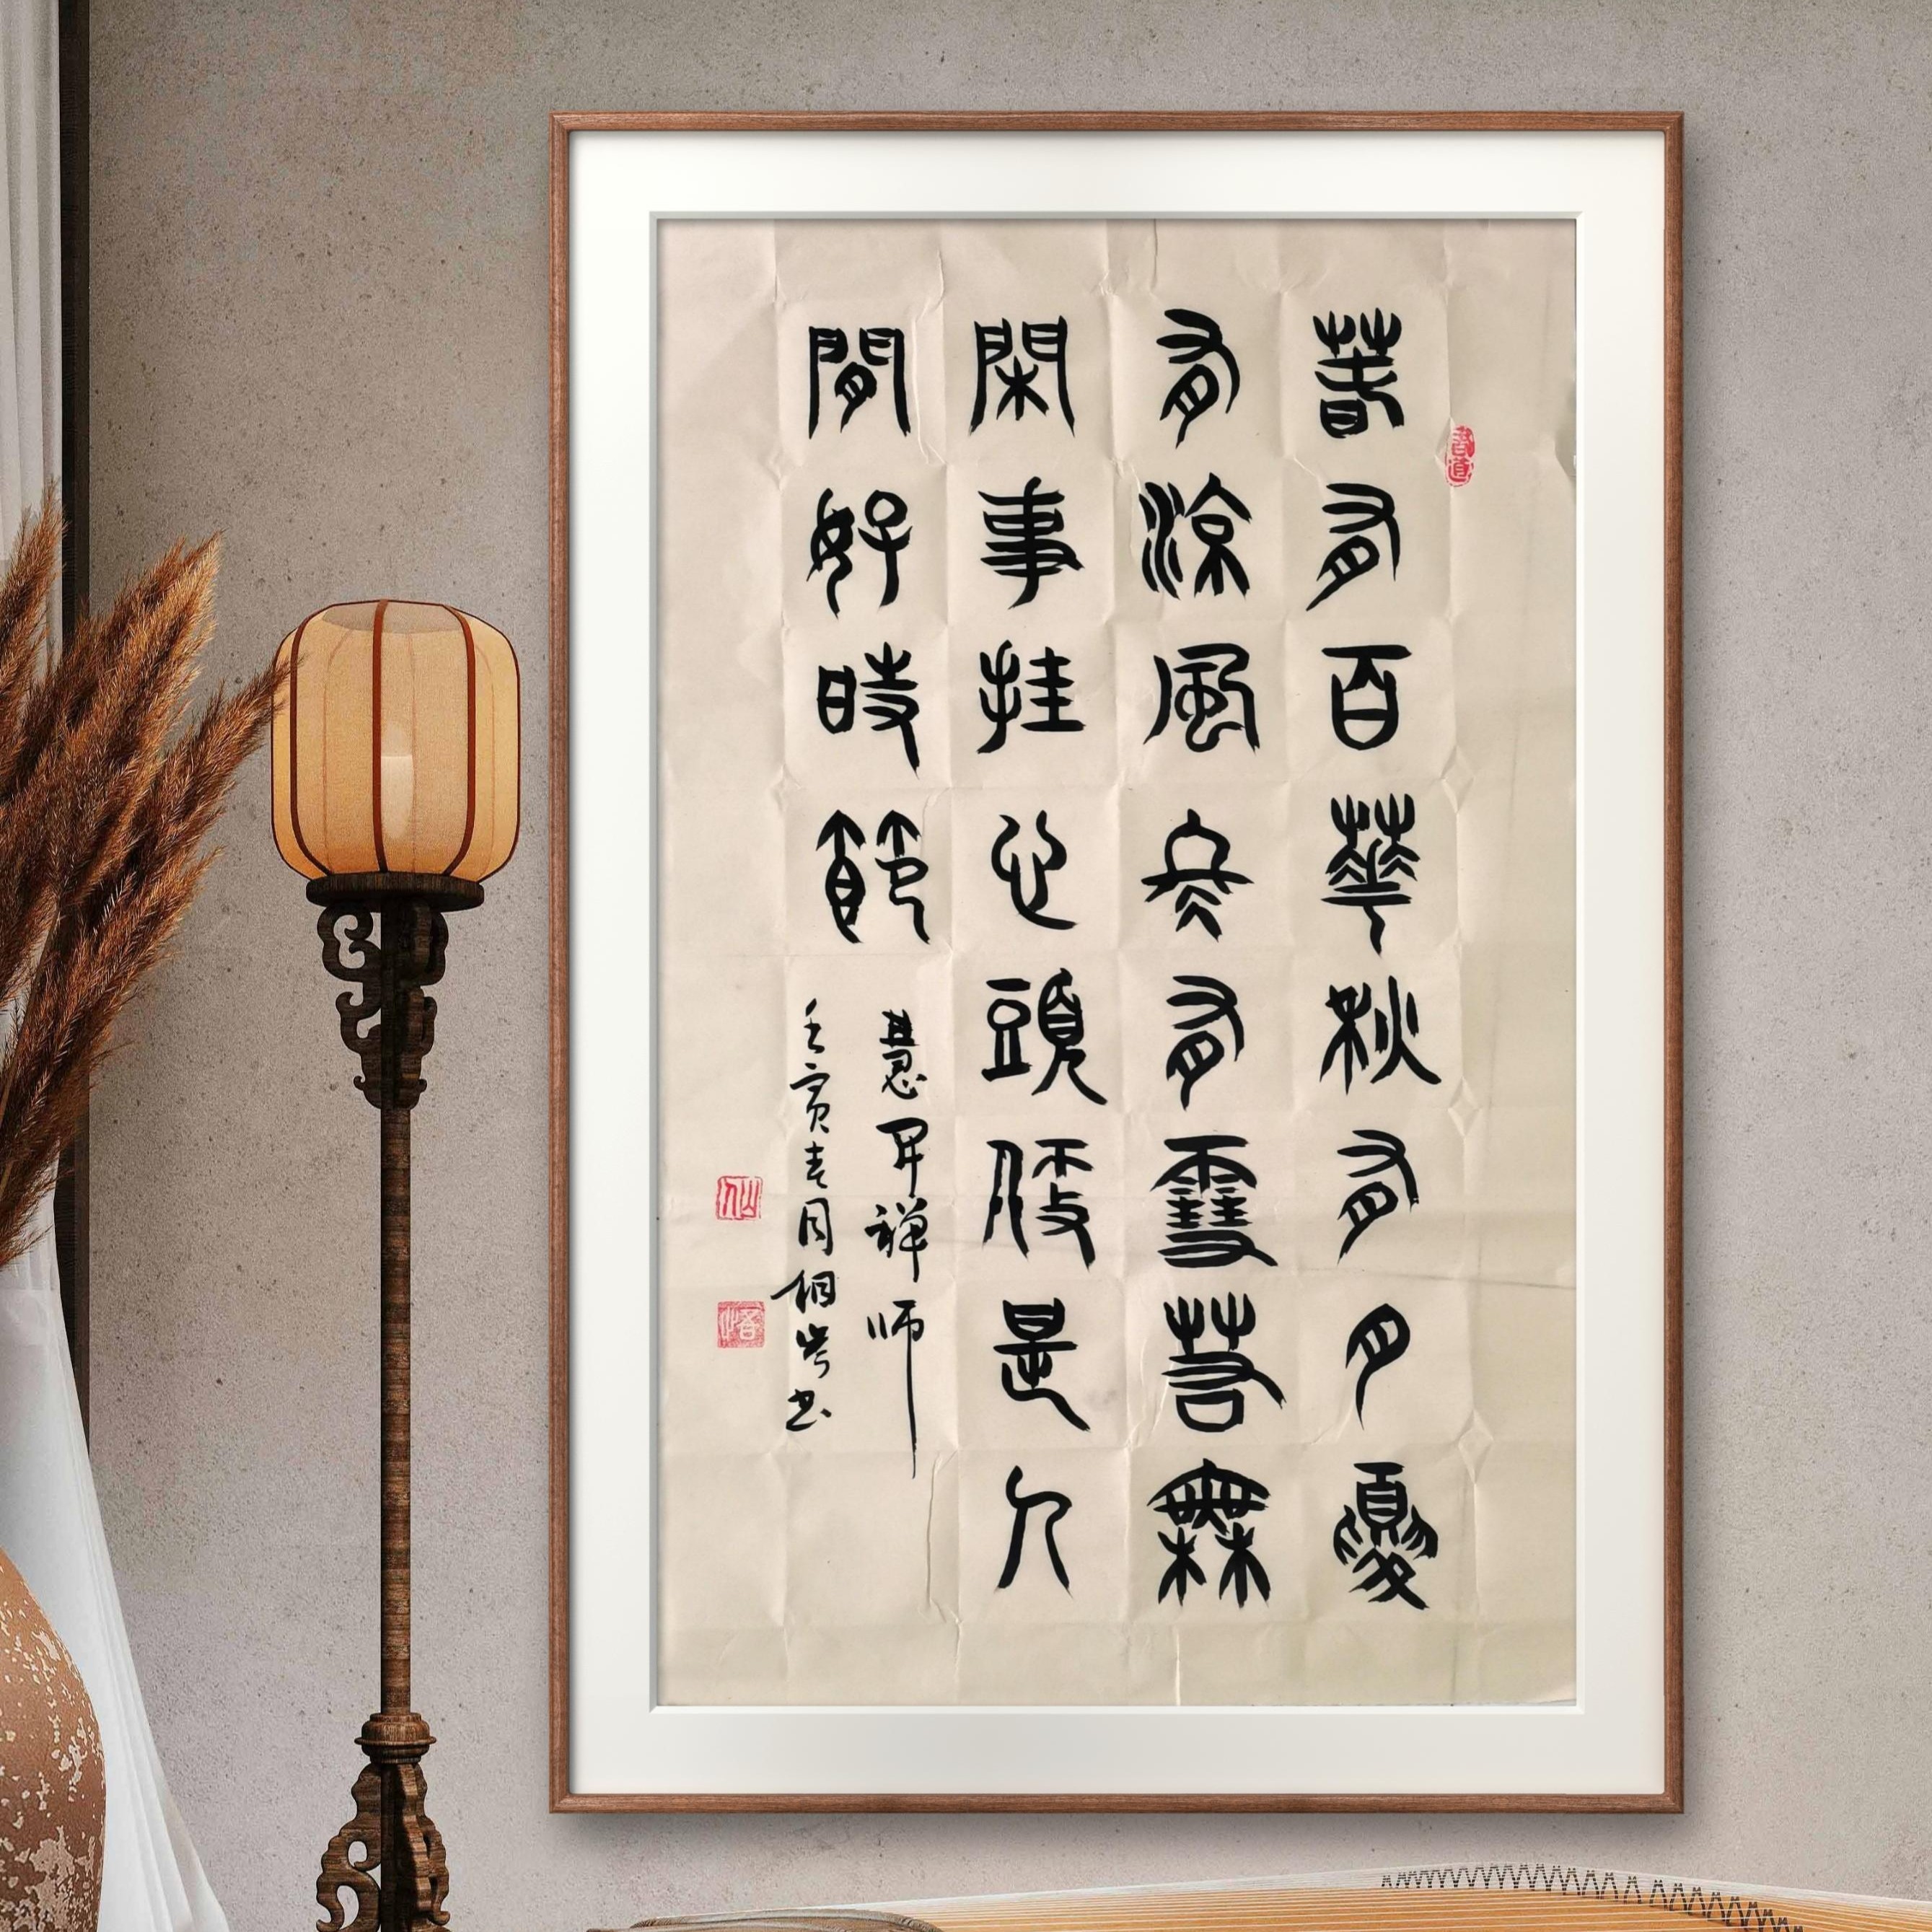 春有百華秋有月夏
有涼風冬有雪若無
閑事挂心頭便是人
間好時節
慧开禅师
壬寅春月书